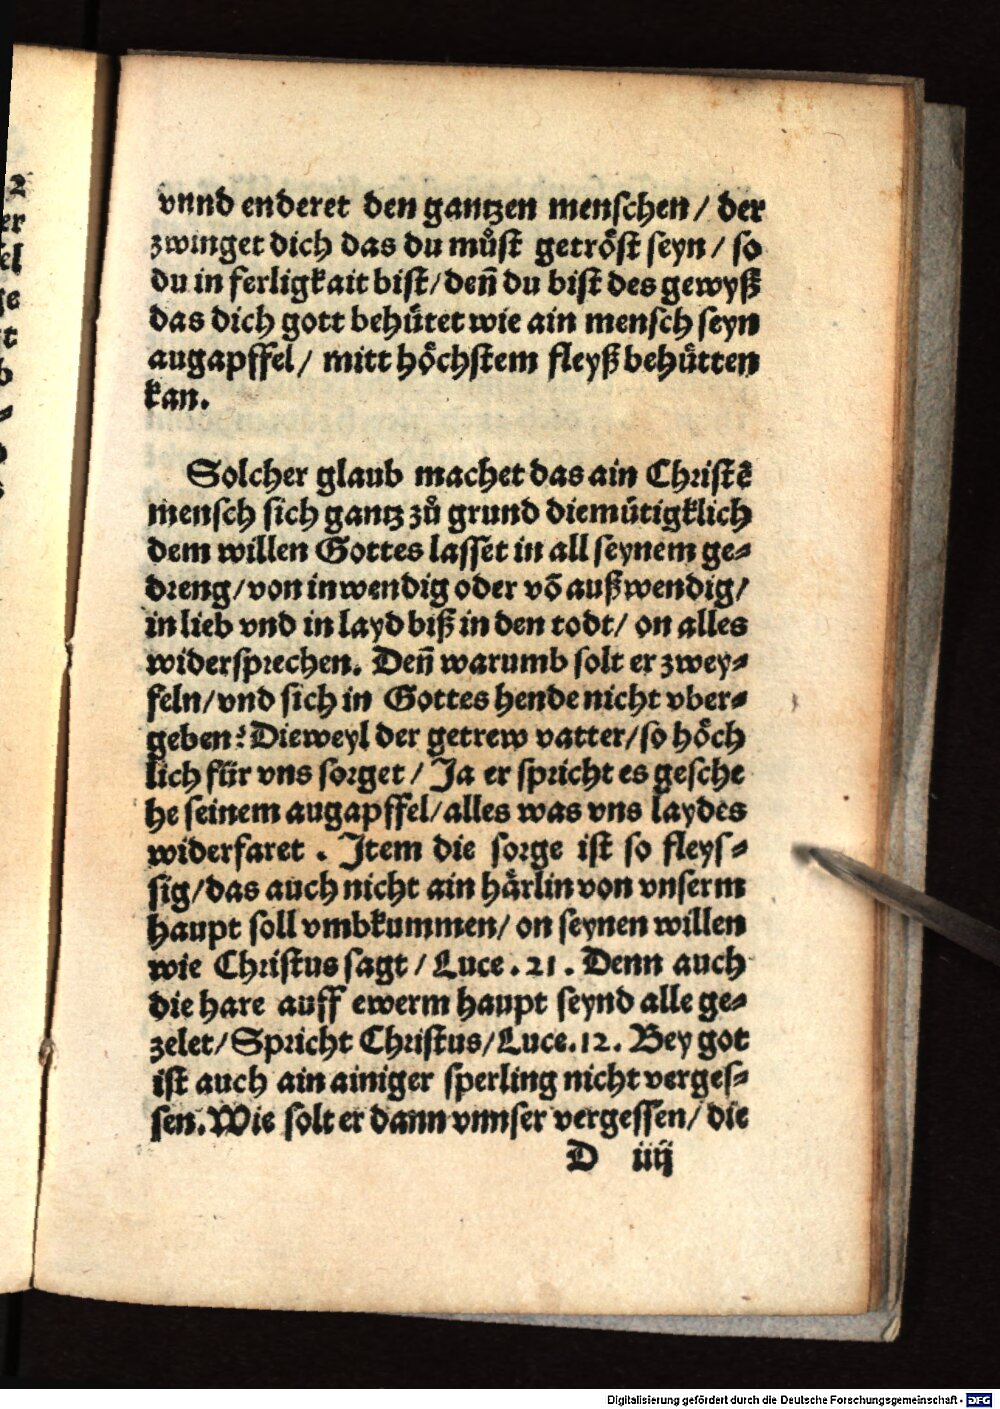 vnnd enderet den gantzen menschen / der
zwinget dich das du můst getröst seyn / so
du in ferligkait bist / deñ du bist des gewyß
das dich gott behütet wie ain mensch seyn
augapffel / mitt höchstem fleyß behütten
kan.
Solcher glaub machet das ain Christẽ
mensch sich gantz zů grund diemütigklich
dem willen Gottes lasset in all seynem ge⸗
dreng / von inwendig oder võ außwendig /
in lieb vnd in layd biß in den todt / on alles
widersprechen. Deñ warumb solt er zwey⸗
feln / vnd sich in Gottes hende nicht vber⸗
geben? Dieweyl der getrew vatter / so höch
lich für vns sorget / Ja er spricht es gesche
he seinem augapffel / alles was vns laydes
widerfaret . Item die sorge ist so fleys⸗
sig / das auch nicht ain härlin von vnserm
haupt soll vmbkummen / on seynen willen
wie Christus sagt / Luce . 21 . Denn auch
die hare auff ewerm haupt seynd alle ge⸗
zelet / Spricht Christus / Luce. 12 . Bey got
ist auch ain ainiger sperling nicht verges⸗
sen. Wie solt er dann vnnser vergessen / die
D iiij
2
er
el
ge
t
b
Digitalisierung gefördert durch die Deutsche Forschungsgemeinschaft - DFG